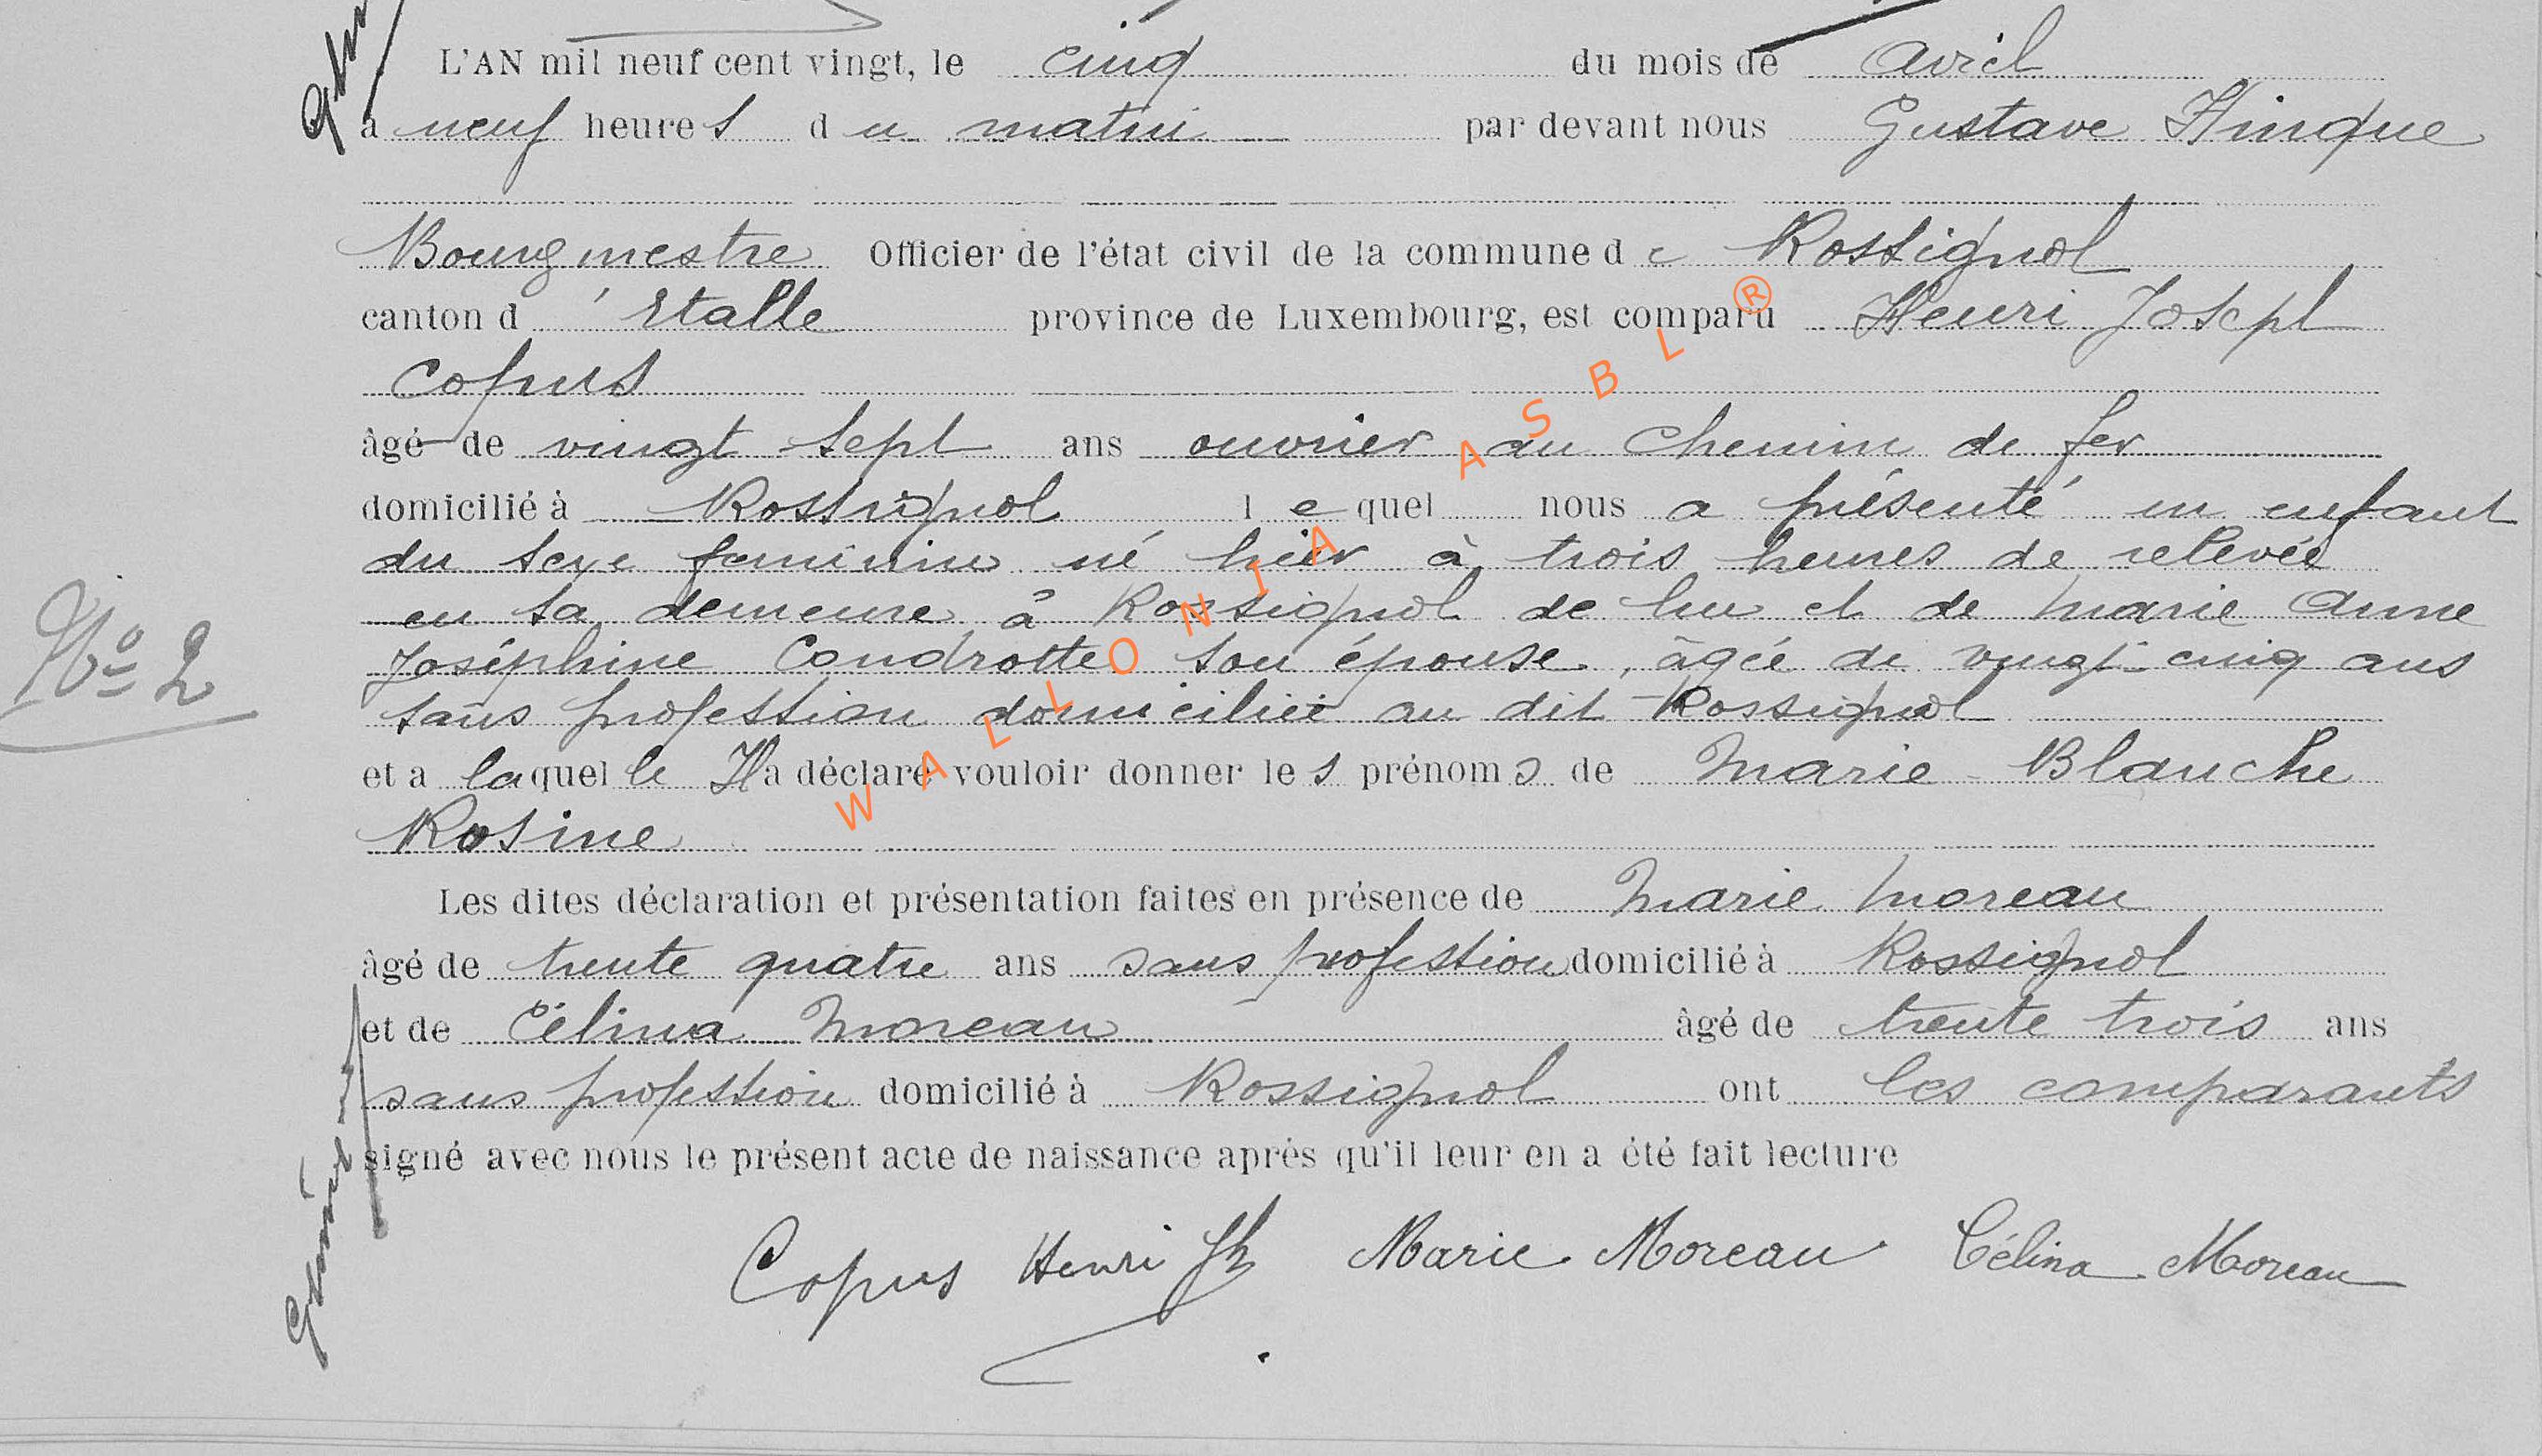 L'AN mil neuf cent vingt, le cinq du mois de avril
à neuf heures du matin par devant nous Gustave Hinque
Bourgmestre Officier de l'état civil de la commune de Rossignol
canton d'Etalle province de Luxembourg, est comparu Henri Joseph
Copus
âgé de vingt-sept ans ouvrier au chemin de fer
domicilié à Rossignol lequel nous a présenté un enfant
du sexe feminin né hier à trois heures de relevée
en sa demeure à Rossignol de lui et de Marie Anne
Joséphine Condrotte son épouse, âgée de vingt-cinq ans
sans profession domiciliée au dit Rossignol
et a laquelle Il a déclaré vouloir donner les prénoms de Marie-Blanche
Rosine
Les dites déclaration et présentation faites en présence de Marie Moreau
âgé de trente quatre ans sans profession domicilié à Rossignol
et de Célina Moreau âgé de trente trois ans
sans profession domicilié à Rossignol ont les comparants
signé avec nous le présent acte de naissance après qu'il leur en a été fait lecture
Copus Henri Jh Marie Moreau Célina Moreau
No 2
WALLONIA ASBL ®